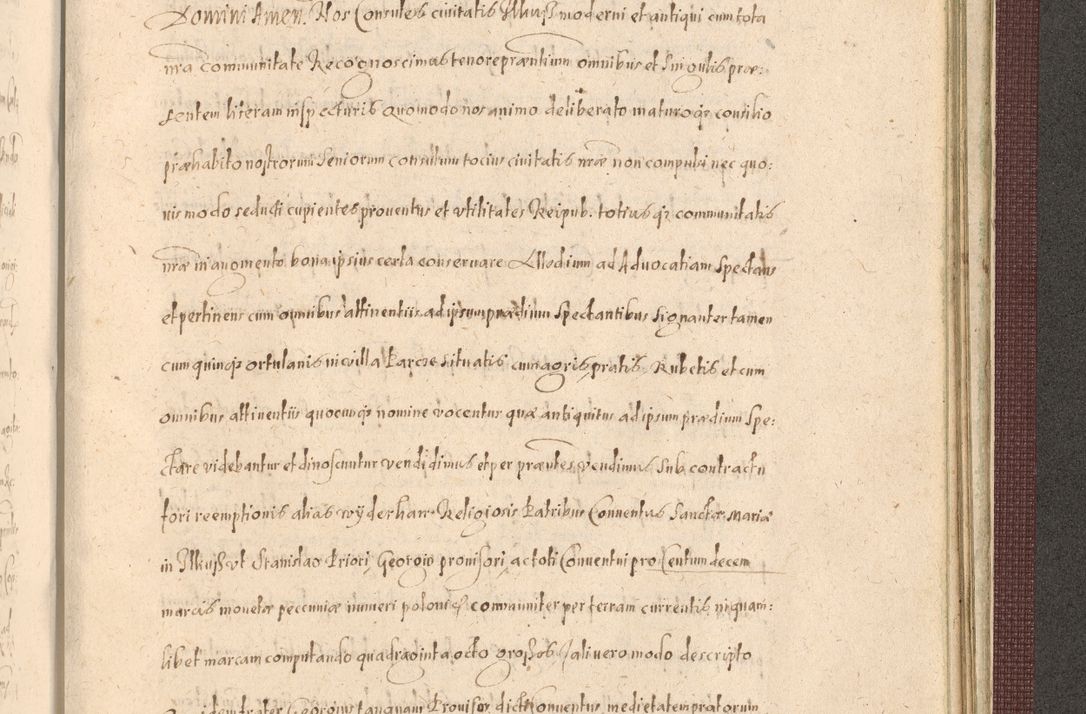 Domini Amen. Nos Consules civitatis Ilkuss moderni et antiqui cum tota
nra communitate Recognoscimus tenore præntium omnibus et Singulis præ:
sentem literam inspecturis quomodo nos animo deliberato maturoqz consilio
præhabito nostrorum Seniorum consultum tocius civitatis nræ non compulsi nec quo:
vis modo seducti cupientes proventus et utilitates Reipub. totius qz communitatis
nræ in augmento bona ipsius certa conservare Allodium ad Advocatiam Spectans
et pertinens cum omnibus attinentiis ad ipsum prædium Spectantibus Signanter tamen
cum quinqz ortulanis in villa Parcze situatis cum agris, pratis, Rubetis et cum
omnibus attinentiis quocunqz nomine vocentur quæ antiquitus ad ipsum prædium Spe:
ctare videbantur et dinoscuntur vendidimus et per præntes vendimus Sub contractu
fori reemptionis alias wyderhaff Religiosis Patribus Conventus Sanctæ Mariæ
in Ilkuss ut Stanislao Priori, Georgio provisori, ac toti Conventui pro Centum decem
marcis monetæ peccuniæ numeri polonic communiter per terram currentis in quam:
libet marcam computando quadraginta octo grosses Tali vero modo descripto
idem frater Georgius tanquam Provisor dicti Conventus medietatem pratorum